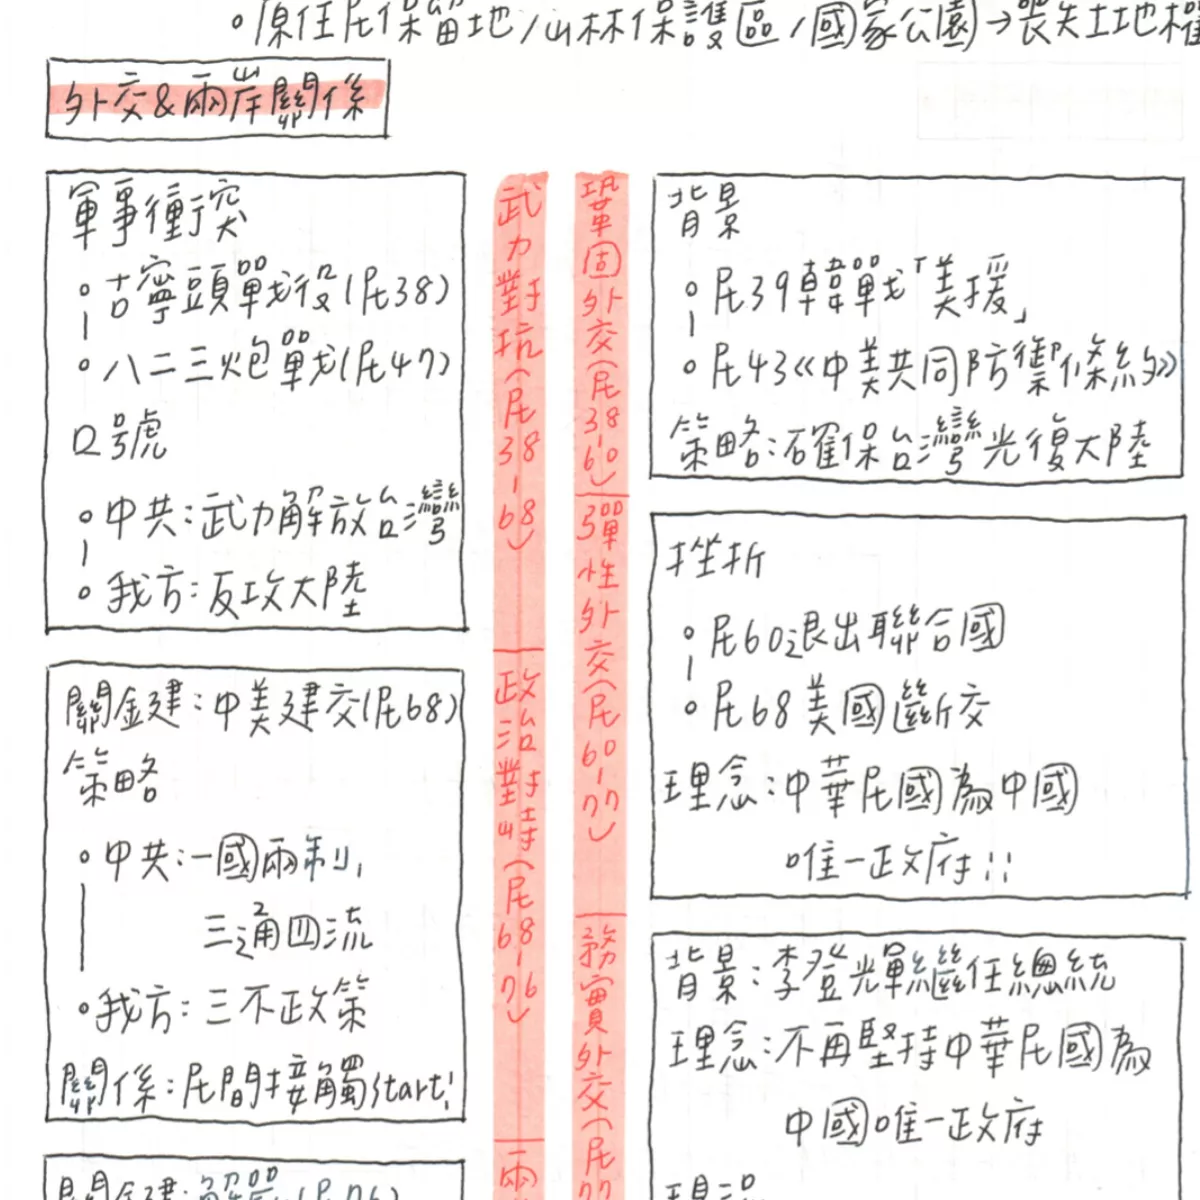 。原住民保留地/山林保護區/國家公園→喪失土地權
外交&兩岸關係
軍事衝突
。古寧頭戰役(民38)
。八二三炮戰(民47)
口號
。中共:武力解放台灣
。我方:反攻大陸
關鍵:中美建交(民68)
策略
。中共:一國兩制,
三通四流
。我方:三不政策
關係:民間接觸start!
關鍵:解嚴(民76)
武力對抗(民38-68)
政治對峙(民68-76)
兩
鞏固外交(民38-60)
彈性外交(民60-77)
務實外交(民77
背景
。民39韓戰「美援」
。民43《中美共同防禦條約》
策略:確保台灣光復大陸
挫折
。民60退出聯合國
。民68美國斷交
理念:中華民國為中國
唯一政府!!
背景:李登輝繼任總統
理念:不再堅持中華民國為
中國唯一政府